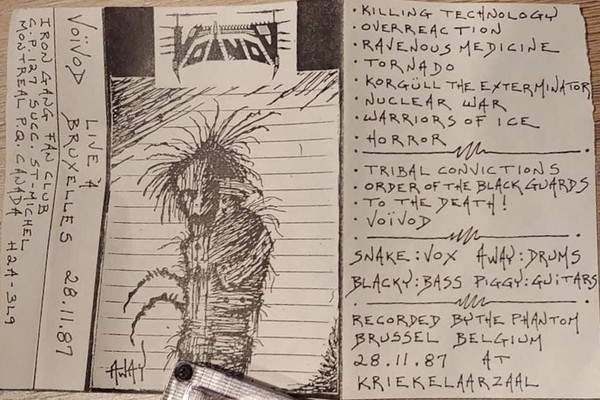 IRON GANG FAN CLUB
C.P. 127 SUCC. ST-MICHEL
MONTREAL P.Q. CANADA H2A-3L9
VOÏVOD LIVE À BRUXELLES 28.11.87
VOIVOD
AWAY
· KILLING TECHNOLOGY
· OVERREACTION
· RAVENOUS MEDICINE
· TORNADO
· KORGÜLL THE EXTERMINATOR
· NUCLEAR WAR
· WARRIORS OF ICE
· HORROR
· TRIBAL CONVICTIONS
· ORDER OF THE BLACKGUARDS
· TO THE DEATH!
· VOÏVOD
SNAKE: VOX AWAY: DRUMS
BLACKY: BASS PIGGY: GUITARS
RECORDED BY THE PHANTOM
BRUSSEL BELGIUM
28.11.87 AT
KRIEKELAARZAAL